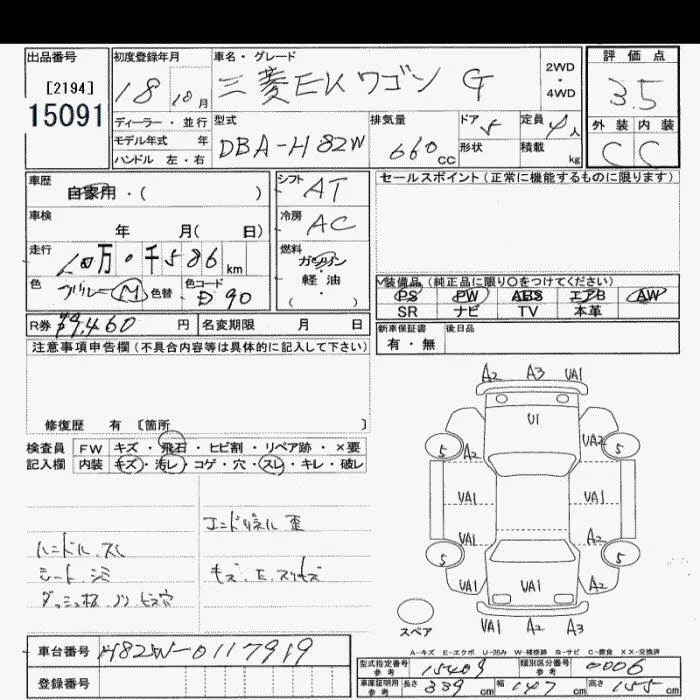 出品番号
[2194]
15091
初度登録年月
18 10月
車名・グレード
三菱EKワゴン G
2WD
・
4WD
評価点
3.5
外装 内装
C C
ディーラー・並行
モデル年式 年
ハンドル 左・右
型式
DBA-H82W
排気量
660cc
ドア 5
形状
定員 4人
積載 kg
車歴
自家用・( )
車検
年 月( 日)
走行
10万0千586km
色
M
色替
色コード
D90
シフト
AT
冷房
AC
燃料
ガソリン
軽油
( )
セールスポイント(正常に機能するものに限ります)
装備品(純正品に限り○をつけてください)
PS PW ABS エアB AW
SR ナビ TV 本革
R券 ¥9,460円
名変期限 月 日
新車保証書
有・無
後日品
注意事項申告欄(不具合内容等は具体的に記入して下さい)
修復歴 有 〔箇所 〕
検査員
記入欄
FW キズ・飛石・ヒビ割・リペア跡・×要
内装 キズ・汚レ・コゲ・穴・スレ・キレ・破レ
ハンドル スレ
シート シミ
エンドパネル 歪
キズ・E・スリキズ
A2 A3 UA1
U1
5 A2 UA2 5
UA1 UA1
UA1 A2
5 5
UA1 UA1 A2
UA1 A2 A3
スペア
A-キズ E-エクボ U-凹み W-補修跡 S-サビ C-腐食 XX-交換済
車台番号
H82W-0117919
登録番号
型式指定番号
参考
15409
類別区分番号
参考
0006
車庫証明用
参考
長さ 339cm
幅 147cm
高さ 155cm